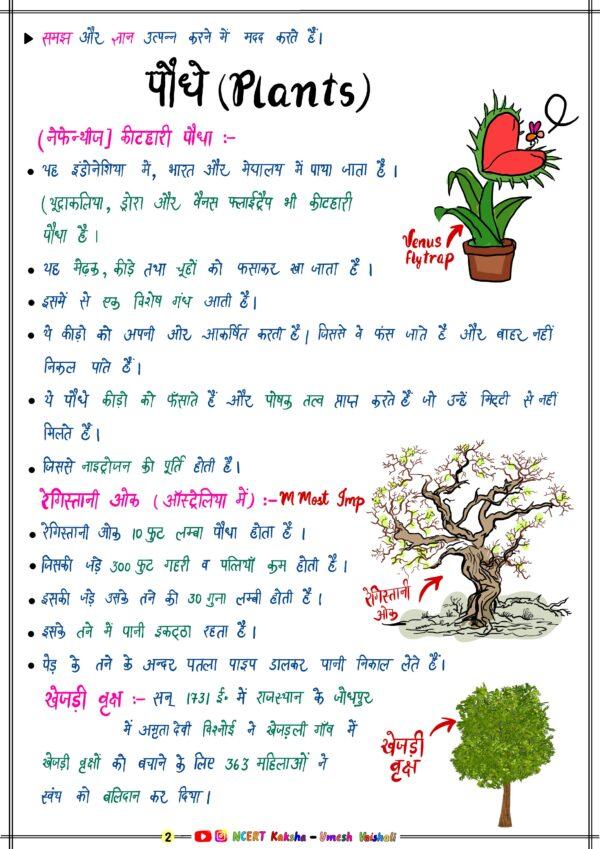 समझ और ज्ञान उत्पन्न करने में मदद करते हैं।
पौधे (Plants)
(नेफेन्थीज] कीटहारी पौधा :-
यह इंडोनेशिया में, भारत और मेघालय में पाया जाता है।
(यूट्राकलिया, ड्रोरा और वैनस फ्लाईट्रैप भी कीटहारी
पौधा है।
Venus
flytrap
यह मेढ़क, कीड़े तथा चूहों को फसाकर खा जाता है।
इसमें से एक विशेष गंध आती है।
ये कीड़ो को अपनी ओर आकर्षित करती है। जिससे वे फंस जाते है और बाहर नहीं
निकल पाते हैं।
ये पौधे कीड़ो को फँसाते हैं और पोषक तत्व प्राप्त करते हैं जो उन्हें मिट्टी से नहीं
मिलते हैं।
जिससे नाइट्रोजन की पूर्ति होती है।
रेगिस्तानी ओक (ऑस्ट्रेलिया में) :- M Most Imp
रेगिस्तानी ओक 10 फुट लम्बा पौधा होता है।
जिसकी जड़ें 300 फुट गहरी व पत्तियाँ कम होती है।
इसकी जड़े उसके तने की 30 गुना लम्बी होती है।
इसके तने में पानी इकट्ठा रहता है।
पेड़ के तने के अन्दर पतला पाइप डालकर पानी निकाल लेते हैं।
रेगिस्तानी
ओक
खेजड़ी वृक्ष :- सन् 1731 ई॰ में राजस्थान के जोधपुर
में अमृता देवी विश्नोई ने खेजड़ली गाँव में
खेजड़ी वृक्षों को बचाने के लिए 363 महिलाओं ने
स्वंय को बलिदान कर दिया।
खेजड़ी
वृक्ष
2 NCERT Kaksha - Umesh Vaishali